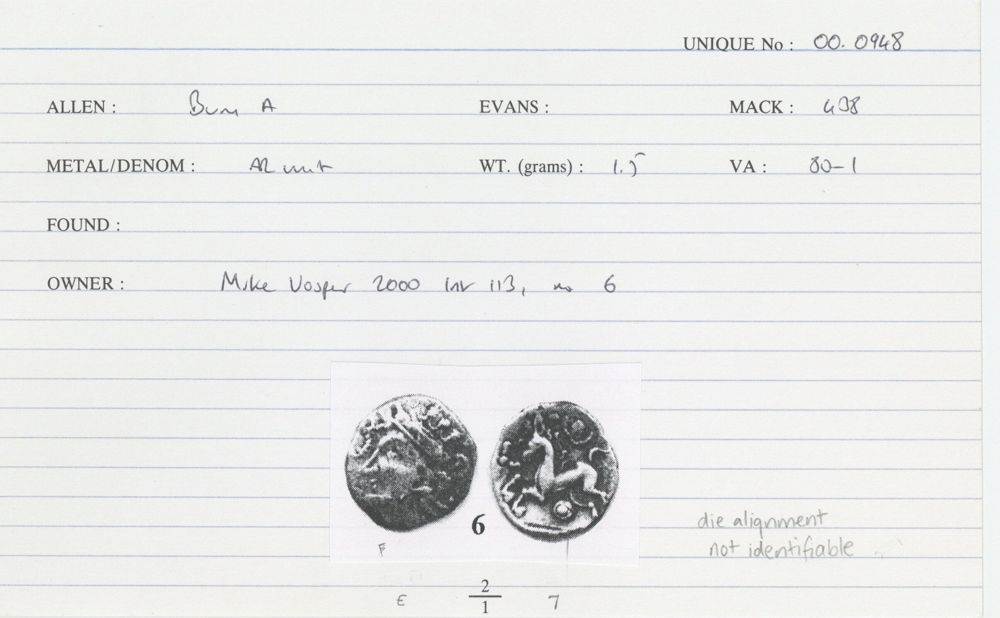 UNIQUE No : 00. 0948
ALLEN : Bury A EVANS : MACK : 438
METAL/DENOM : AR unit WT. (grams) : 1.5 VA : 80-1
FOUND :
OWNER : Mike Vosper 2000 Inv 113, no 6
6
die alignment
not identifiable
F
E 2/1 7